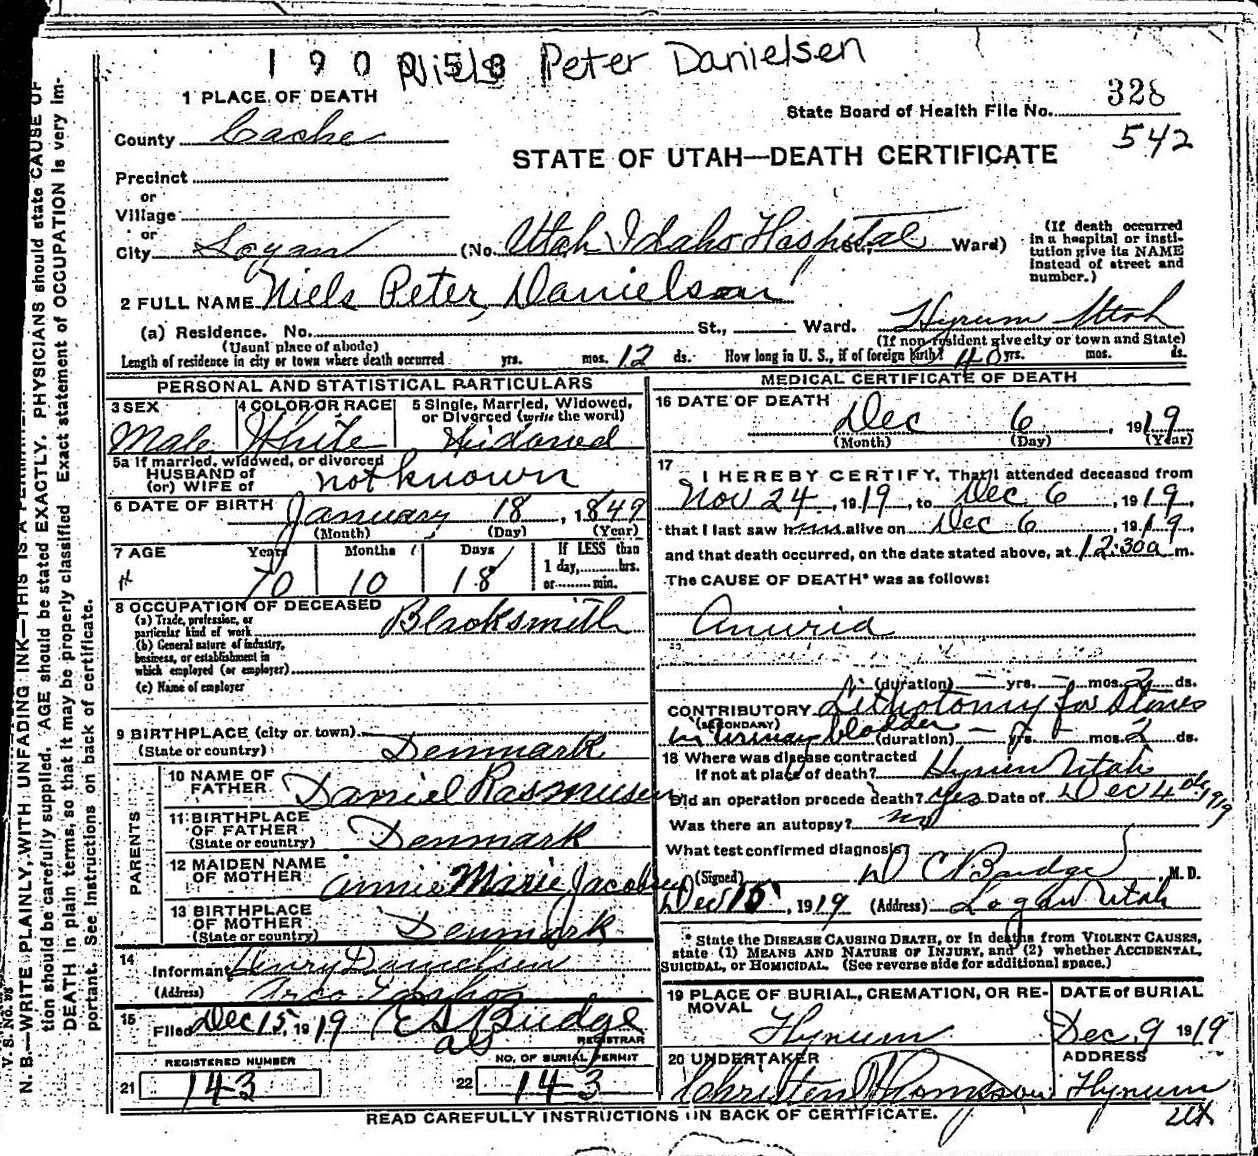 1900 58 Niels Peter Danielsen
1 PLACE OF DEATH
State Board of Health File No. 328
542
County Cache
STATE OF UTAH—DEATH CERTIFICATE
Precinct
or
Village
or
City Logan (No. Utah Idaho Hospital St., Ward)
(If death occurred in a hospital or institution give its NAME instead of street and number.)
2 FULL NAME Niels Peter Danielson
(a) Residence. No. St., Ward. Hyrum Utah
(Usual place of abode) (If non-resident give city or town and State)
Length of residence in city or town where death occurred yrs. mos. 12 ds. How long in U. S., if of foreign birth? 40 yrs. mos. ds.
PERSONAL AND STATISTICAL PARTICULARS
3 SEX
Male
4 COLOR OR RACE
White
5 Single, Married, Widowed,
or Divorced (write the word)
Widowed
5a If married, widowed, or divorced
HUSBAND of
(or) WIFE of not known
6 DATE OF BIRTH January 18, 1849
(Month) (Day) (Year)
7 AGE Years Months Days If LESS than
1 day, hrs.
or min.
70 10 18
8 OCCUPATION OF DECEASED
(a) Trade, profession, or
particular kind of work Blacksmith
(b) General nature of industry,
business, or establishment in
which employed (or employer)
(c) Name of employer
9 BIRTHPLACE (city or town)
(State or country) Denmark
PARENTS
10 NAME OF
FATHER Daniel Rasmusen
11 BIRTHPLACE
OF FATHER
(State or country) Denmark
12 MAIDEN NAME
OF MOTHER Annie Marie Jacobsen
13 BIRTHPLACE
OF MOTHER
(State or country) Denmark
14
Informant Henry Danielsen
(Address) Arco Idaho
15
Filed Dec 15, 1919 E S Budge
REGISTRAR
REGISTERED NUMBER
21 143
NO. OF BURIAL PERMIT
22 143
MEDICAL CERTIFICATE OF DEATH
16 DATE OF DEATH
Dec 6, 1919
(Month) (Day) (Year)
17
I HEREBY CERTIFY, That I attended deceased from
Nov 24, 1919, to Dec 6, 1919,
that I last saw him alive on Dec 6, 1919,
and that death occurred, on the date stated above, at 12:30 a m.
The CAUSE OF DEATH* was as follows:
Anuria
(duration) — yrs. — mos. 2 ds.
CONTRIBUTORY Lithotomy for Stones
(SECONDARY)
in urinary bladder (duration) — yrs. — mos. 2 ds.
18 Where was disease contracted
If not at place of death? Hyrum Utah
Did an operation precede death? Yes Date of Dec 4 1919
Was there an autopsy? no
What test confirmed diagnosis?
(Signed) D C Budge, M. D.
Dec 15, 1919 (Address) Logan Utah
* State the DISEASE CAUSING DEATH, or in deaths from VIOLENT CAUSES,
state (1) MEANS AND NATURE OF INJURY, and (2) whether ACCIDENTAL,
SUICIDAL, or HOMICIDAL. (See reverse side for additional space.)
19 PLACE OF BURIAL, CREMATION, OR REMOVAL
Hyrum
DATE of BURIAL
Dec. 9 1919
20 UNDERTAKER
ADDRESS
Hyrum
Ut
READ CAREFULLY INSTRUCTIONS ON BACK OF CERTIFICATE.
V. S. No.
N. B.—WRITE PLAINLY, WITH UNFADING INK—THIS IS A
tion should be carefully supplied. AGE should be stated EXACTLY. PHYSICIANS should state CAUSE OF
DEATH in plain terms, so that it may be properly classified. Exact statement of OCCUPATION is very im-
portant. See Instructions on back of certificate.